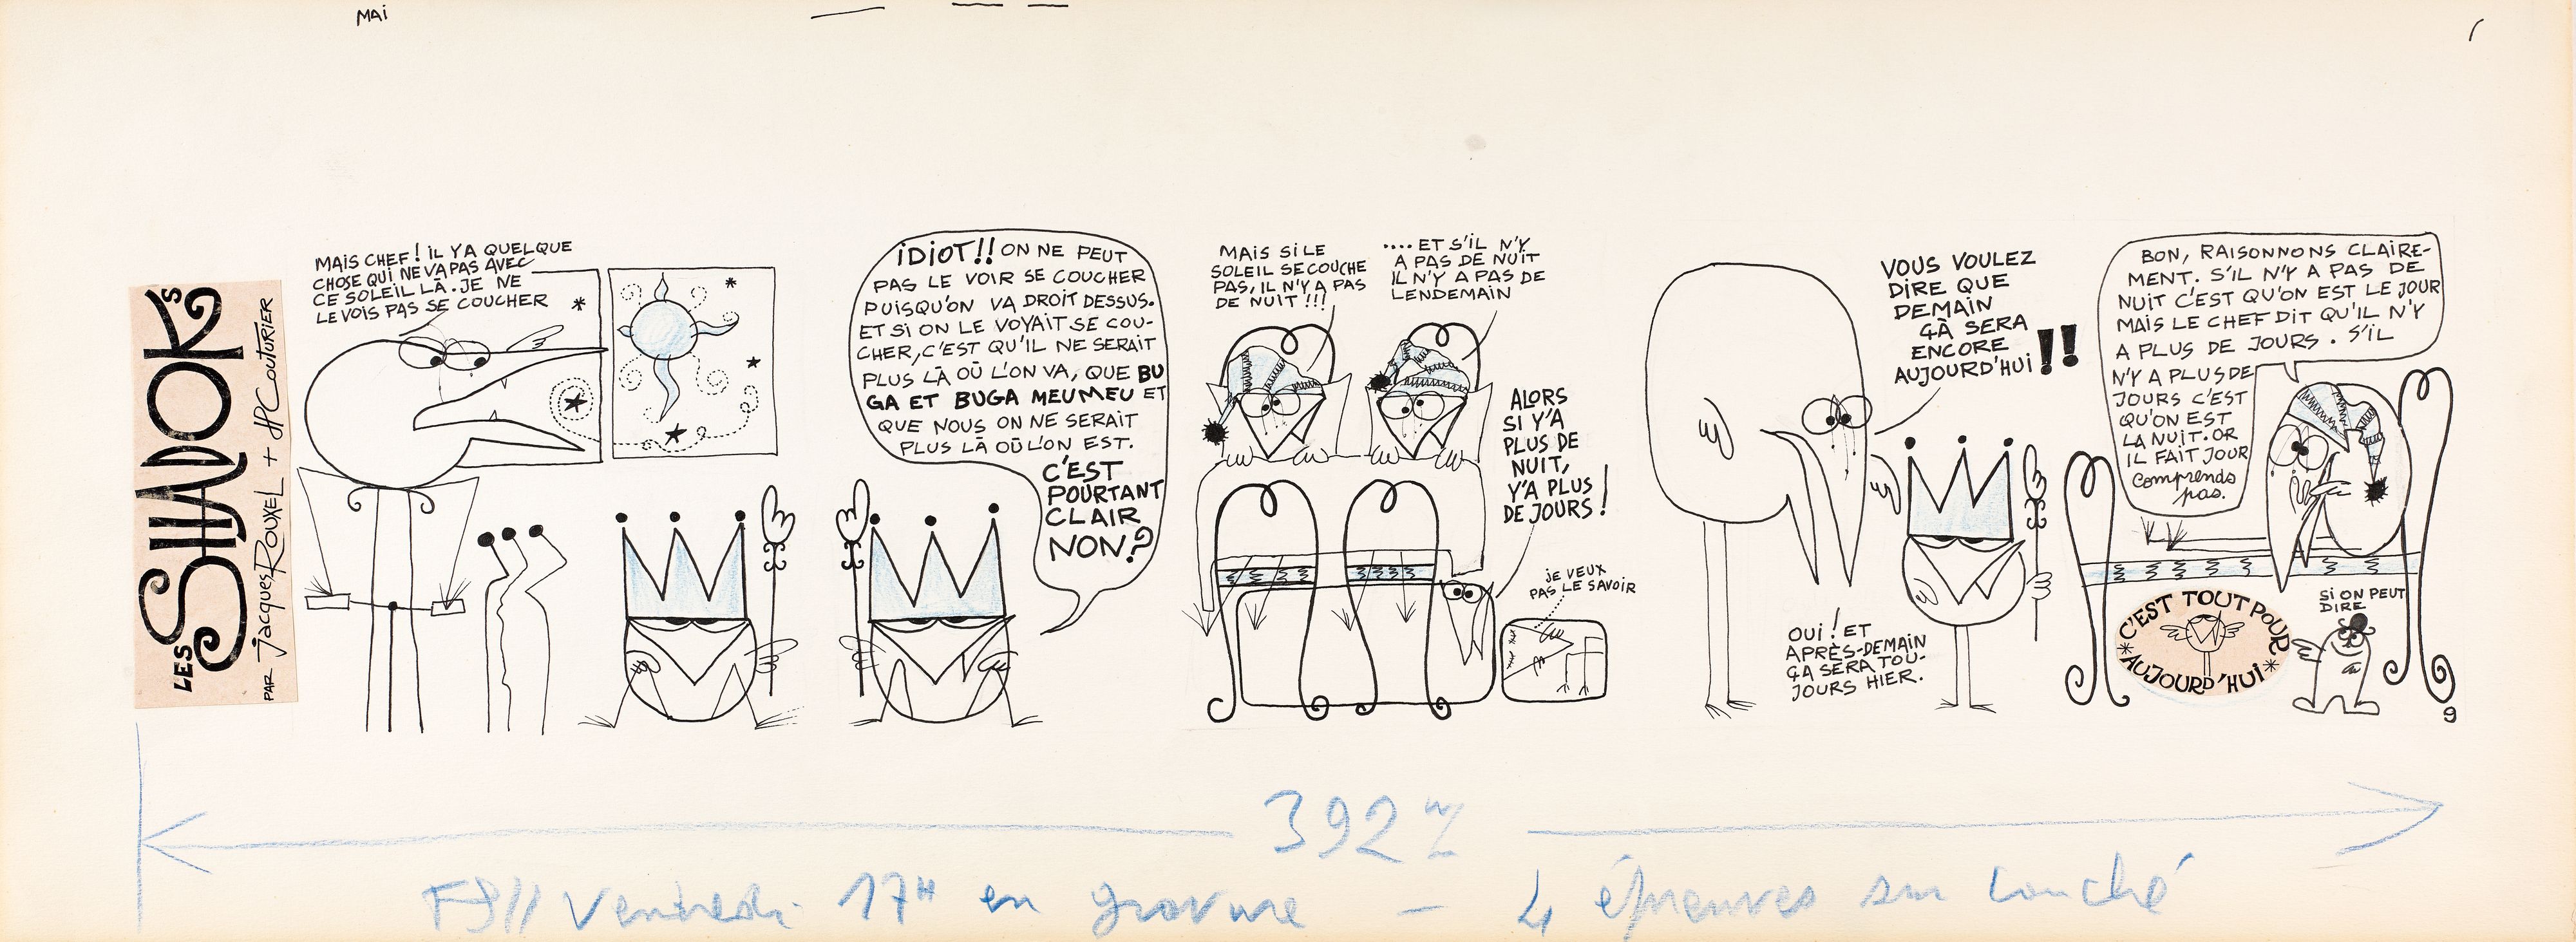 MAI
LES SHADOKS
PAR Jacques ROUXEL + JPCOUTURIER
MAIS CHEF! IL Y A QUELQUE
CHOSE QUI NE VA PAS AVEC
CE SOLEIL LÀ. JE NE
LE VOIS PAS SE COUCHER
IDIOT!! ON NE PEUT
PAS LE VOIR SE COUCHER
PUISQU'ON VA DROIT DESSUS.
ET SI ON LE VOYAIT SE COU-
CHER, C'EST QU'IL NE SERAIT
PLUS LÀ OÙ L'ON VA, QUE BU
GA ET BUGA MEUMEU ET
QUE NOUS ON NE SERAIT
PLUS LÀ OÙ L'ON EST.
C'EST
POURTANT
CLAIR
NON?
MAIS SI LE
SOLEIL SE COUCHE
PAS, IL N'Y A PAS
DE NUIT!!!
.... ET S'IL N'Y
A PAS DE NUIT
IL N'Y A PAS DE
LENDEMAIN
ALORS
SI Y'A
PLUS DE
NUIT,
Y'A PLUS
DE JOURS!
JE VEUX
PAS LE SAVOIR
VOUS VOULEZ
DIRE QUE
DEMAIN
ÇÀ SERA
ENCORE
AUJOURD'HUI!!
OUI! ET
APRÈS-DEMAIN
ÇA SERA TOU-
JOURS HIER.
BON, RAISONNONS CLAIRE-
MENT. S'IL N'Y A PAS DE
NUIT C'EST QU'ON EST LE JOUR
MAIS LE CHEF DIT QU'IL N'Y
A PLUS DE JOURS. S'IL
N'Y A PLUS DE
JOURS C'EST
QU'ON EST
LA NUIT. OR
IL FAIT JOUR
Comprends
pas.
C'EST TOUT POUR
*AUJOURD'HUI*
SI ON PEUT
DIRE
9
392
Vendredi 17H en gravure — 4 épreuves sur couché